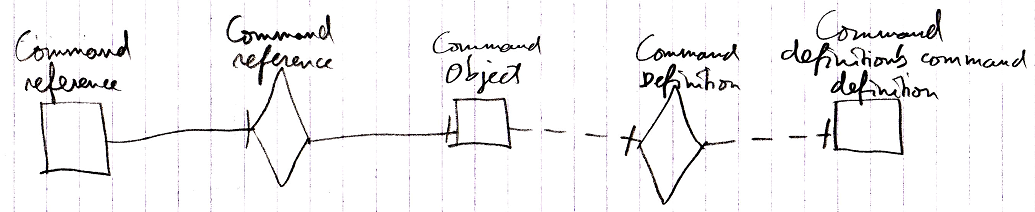 Command
reference
Command
reference
Command
Object
Command
Definition
Command
definition's command
definition